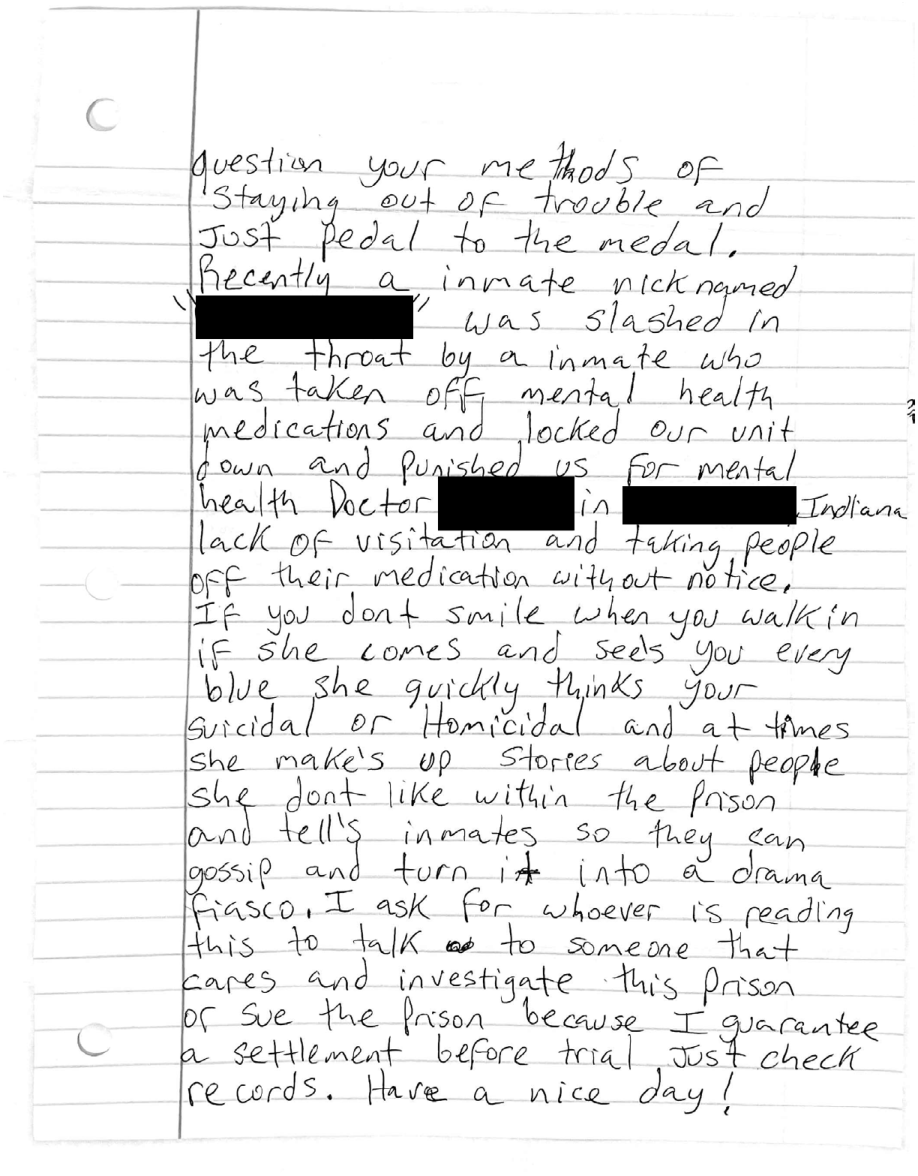 question your methods of
staying out of trouble and
Just pedal to the medal.
Recently a inmate nicknamed
" " was slashed in
the throat by a inmate who
was taken off mental health
medications and locked our unit
down and punished us for mental
health Doctor in , Indiana
lack of visitation and taking people
off their medication without notice.
If you dont smile when you walk in
if she comes and seels you every
blue she quickly thinks your
suicidal or Homicidal and at times
she make's up stories about people
she dont like within the Prison
and tell's inmates so they can
gossip and turn it into a drama
fiasco. I ask for whoever is reading
this to talk to someone that
cares and investigate this Prison
or sue the Prison because I guarantee
a settlement before trial Just check
records. Have a nice day!